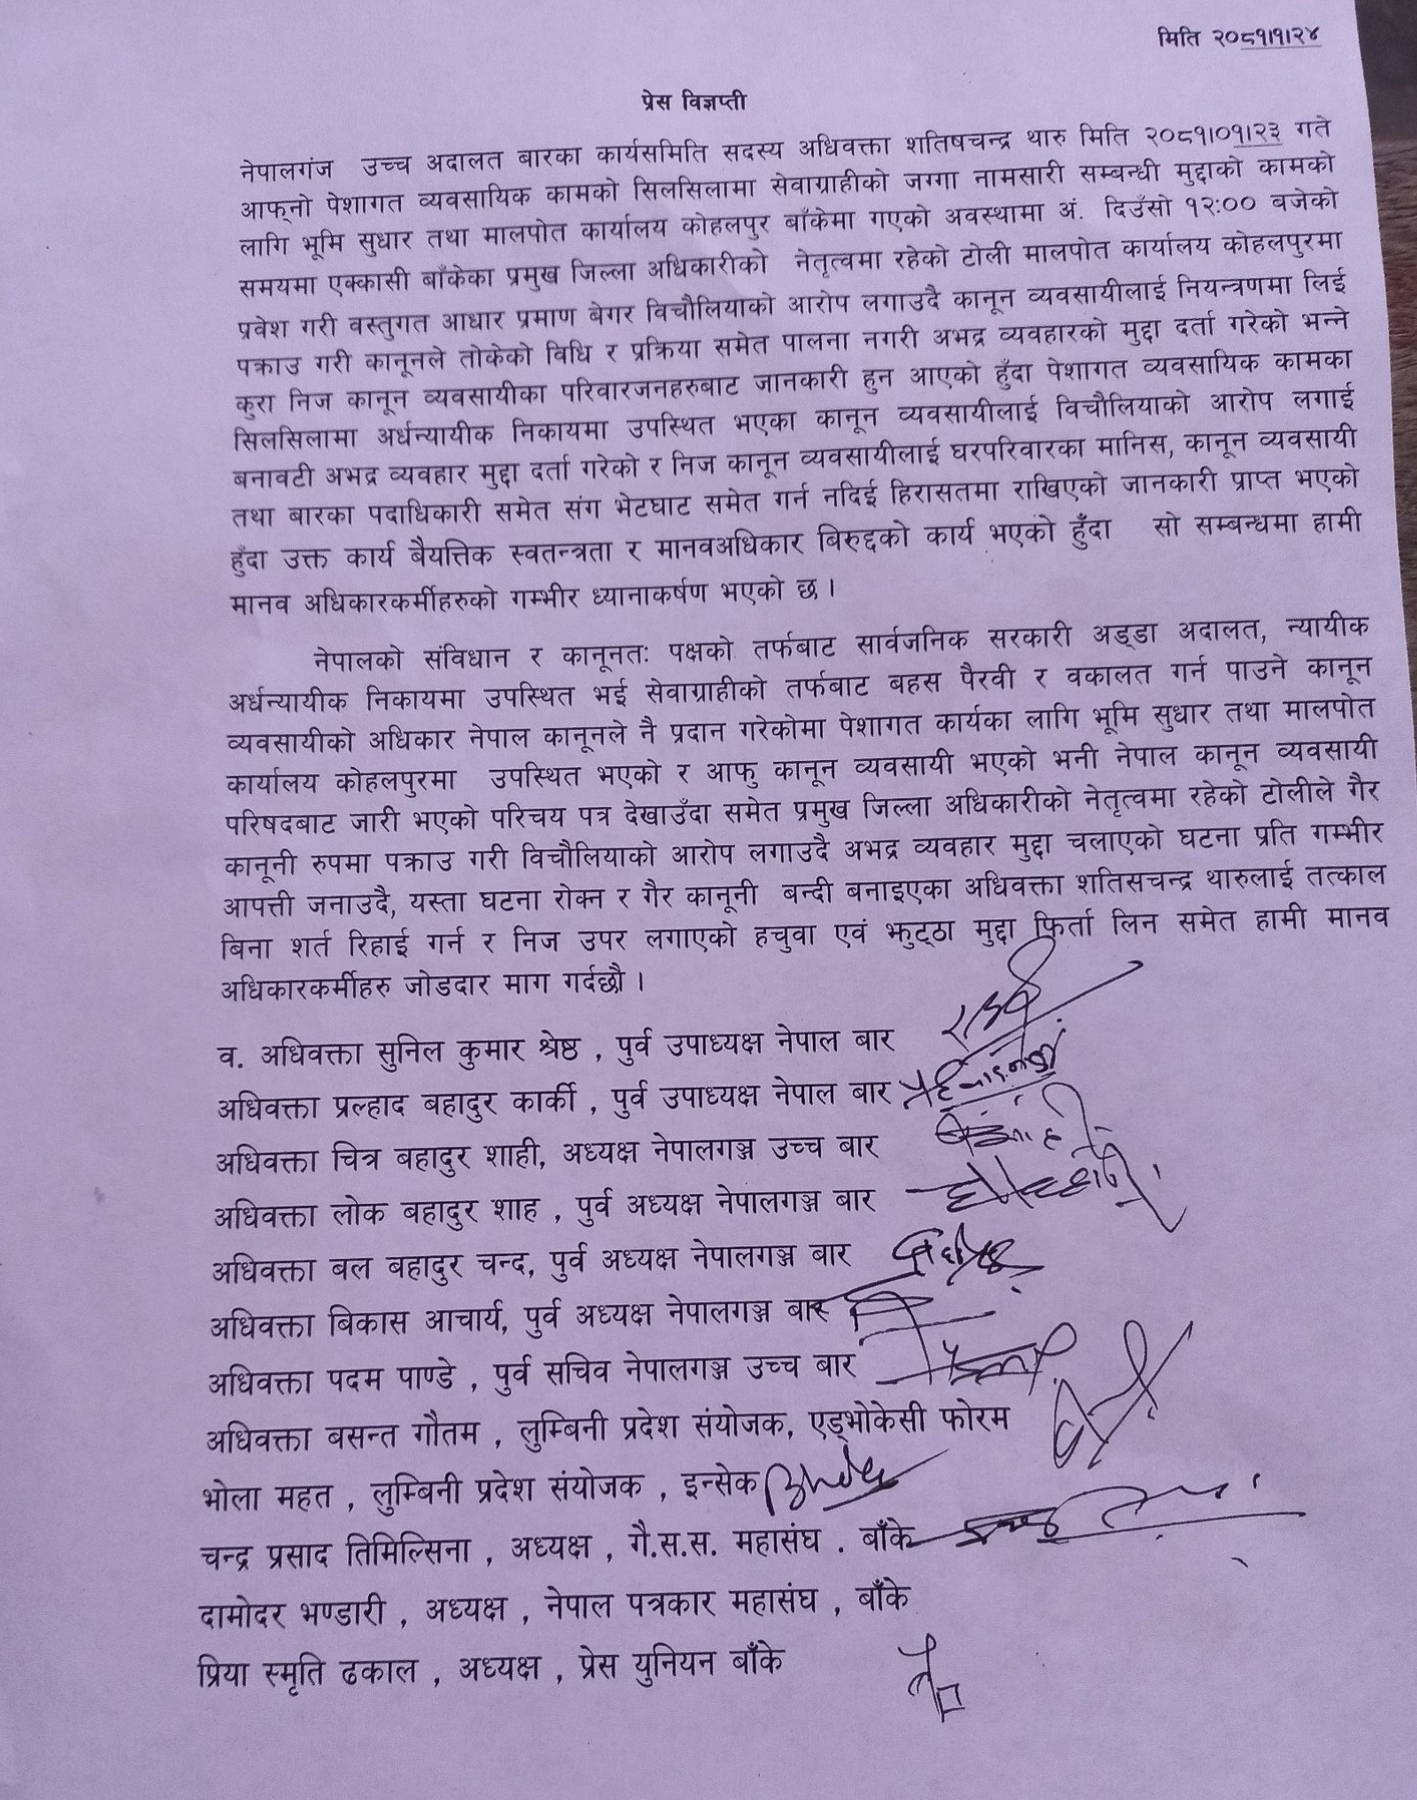 मिति २०८१।१।२४
प्रेस विज्ञप्ती
नेपालगंज उच्च अदालत बारका कार्यसमिति सदस्य अधिवक्ता शतिषचन्द्र थारु मिति २०८१।०१।२३ गते
आफ्नो पेशागत व्यवसायिक कामको सिलसिलामा सेवाग्राहीको जग्गा नामसारी सम्बन्धी मुद्दाको कामको
लागि भूमि सुधार तथा मालपोत कार्यालय कोहलपुर बाँकेमा गएको अवस्थामा अं. दिउँसो १२:०० बजेको
समयमा एक्कासी बाँकेका प्रमुख जिल्ला अधिकारीको नेतृत्वमा रहेको टोली मालपोत कार्यालय कोहलपुरमा
प्रवेश गरी वस्तुगत आधार प्रमाण बेगर विचौलियाको आरोप लगाउदै कानून व्यवसायीलाई नियन्त्रणमा लिई
पक्राउ गरी कानूनले तोकेको विधि र प्रक्रिया समेत पालना नगरी अभद्र व्यवहारको मुद्दा दर्ता गरेको भन्ने
कुरा निज कानून व्यवसायीका परिवारजनहरुबाट जानकारी हुन आएको हुँदा पेशागत व्यवसायिक कामका
सिलसिलामा अर्धन्यायीक निकायमा उपस्थित भएका कानून व्यवसायीलाई विचौलियाको आरोप लगाई
बनावटी अभद्र व्यवहार मुद्दा दर्ता गरेको र निज कानून व्यवसायीलाई घरपरिवारका मानिस, कानून व्यवसायी
तथा बारका पदाधिकारी समेत संग भेटघाट समेत गर्न नदिई हिरासतमा राखिएको जानकारी प्राप्त भएको
हुँदा उक्त कार्य बैयत्तिक स्वतन्त्रता र मानवअधिकार बिरुद्दको कार्य भएको हुँदा सो सम्बन्धमा हामी
मानव अधिकारकर्मीहरुको गम्भीर ध्यानाकर्षण भएको छ ।
नेपालको संविधान र कानूनतः पक्षको तर्फबाट सार्वजनिक सरकारी अड्डा अदालत, न्यायीक
अर्धन्यायीक निकायमा उपस्थित भई सेवाग्राहीको तर्फबाट बहस पैरवी र वकालत गर्न पाउने कानून
व्यवसायीको अधिकार नेपाल कानूनले नै प्रदान गरेकोमा पेशागत कार्यका लागि भूमि सुधार तथा मालपोत
कार्यालय कोहलपुरमा उपस्थित भएको र आफु कानून व्यवसायी भएको भनी नेपाल कानून व्यवसायी
परिषदबाट जारी भएको परिचय पत्र देखाउँदा समेत प्रमुख जिल्ला अधिकारीको नेतृत्वमा रहेको टोलीले गैर
कानूनी रुपमा पक्राउ गरी विचौलियाको आरोप लगाउदै अभद्र व्यवहार मुद्दा चलाएको घटना प्रति गम्भीर
आपत्ती जनाउदै, यस्ता घटना रोक्न र गैर कानूनी बन्दी बनाइएका अधिवक्ता शतिसचन्द्र थारुलाई तत्काल
बिना शर्त रिहाई गर्न र निज उपर लगाएको हचुवा एवं झुट्ठा मुद्दा फिर्ता लिन समेत हामी मानव
अधिकारकर्मीहरु जोडदार माग गर्दछौ ।
व. अधिवक्ता सुनिल कुमार श्रेष्ठ , पुर्व उपाध्यक्ष नेपाल बार
अधिवक्ता प्रल्हाद बहादुर कार्की , पुर्व उपाध्यक्ष नेपाल बार
अधिवक्ता चित्र बहादुर शाही, अध्यक्ष नेपालगञ्ज उच्च बार
अधिवक्ता लोक बहादुर शाह , पुर्व अध्यक्ष नेपालगञ्ज बार
अधिवक्ता बल बहादुर चन्द, पुर्व अध्यक्ष नेपालगञ्ज बार
अधिवक्ता बिकास आचार्य, पुर्व अध्यक्ष नेपालगञ्ज बार
अधिवक्ता पदम पाण्डे , पुर्व सचिव नेपालगञ्ज उच्च बार
अधिवक्ता बसन्त गौतम , लुम्बिनी प्रदेश संयोजक, एड्भोकेसी फोरम
भोला महत , लुम्बिनी प्रदेश संयोजक , इन्सेक
चन्द्र प्रसाद तिमिल्सिना , अध्यक्ष , गै.स.स. महासंघ . बाँके
दामोदर भण्डारी , अध्यक्ष , नेपाल पत्रकार महासंघ , बाँके
प्रिया स्मृति ढकाल , अध्यक्ष , प्रेस युनियन बाँके